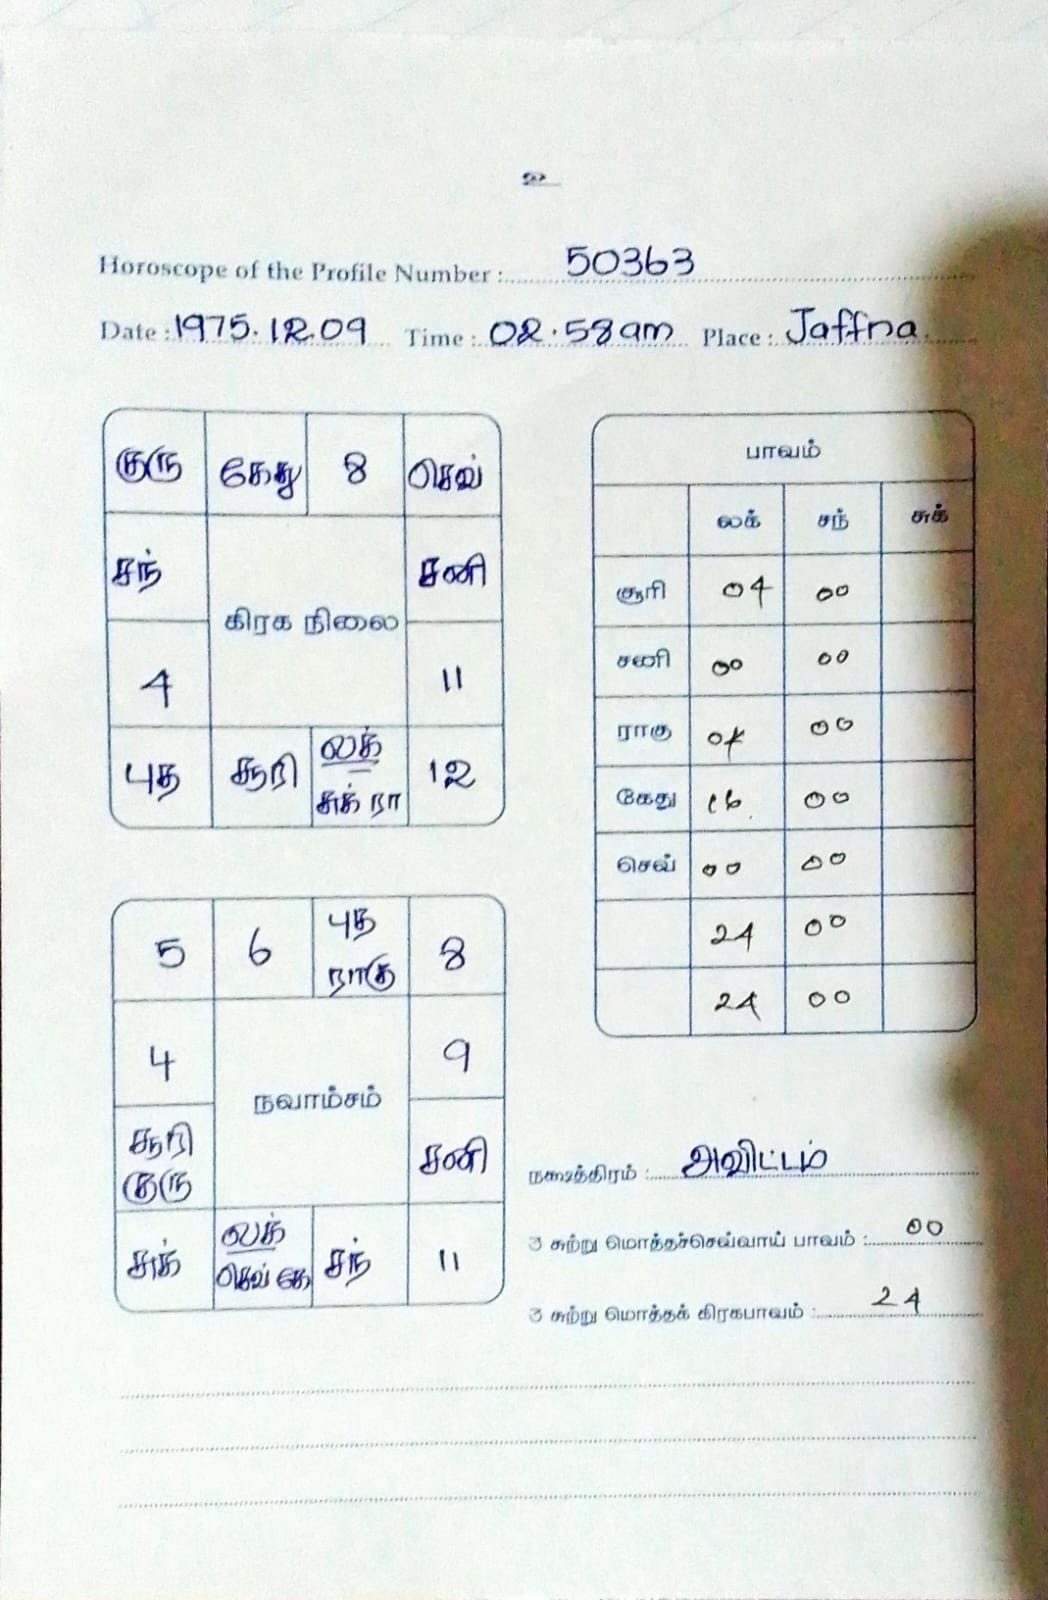 உ
Horoscope of the Profile Number : 50363
Date : 1975.12.09 Time : 02.58am Place : Jaffna.
குரு கேது 8 செவ்
சந் சனி
கிரக நிலை
4 11
புத சூரி லக் சுக் ரா 12
பாவம்
லக் சந் சுக்
சூரி 04 00
சனி 00 00
ராகு 00
கேது 16 00
செவ் 00 00
24 00
24 00
5 6 புத ராகு 8
4 9
நவாம்சம்
சூரி குரு சனி
சுக் லக் செவ் கே சந் 11
நக்ஷத்திரம் : அவிட்டம்
3 சுற்று மொத்தச்செவ்வாய் பாவம் : 00
3 சுற்று மொத்தக் கிரகபாவம் : 24